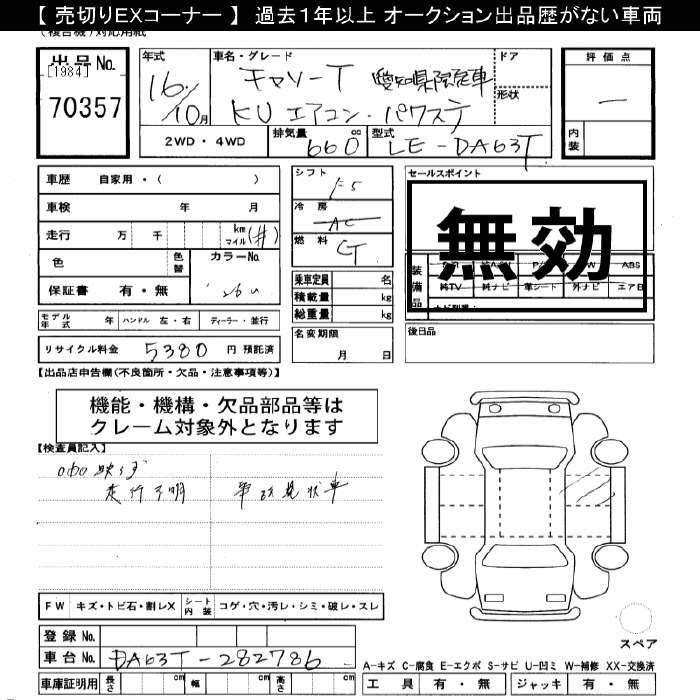 【 売切りEXコーナー 】 過去1年以上 オークション出品歴がない車両
(複合機)対応用紙
出品No.
[1984]
70357
年式
16/10月
車名・グレード
キャリーT
KU エアコン・パワステ
ドア
形状
評価点
—
内装
2WD・4WD
排気量 660 cc
型式 LE-DA63T
車歴 自家用・( )
車検 年 月
走行 万 千 km マイル (#)
色 色替 カラーNo.
保証書 有・無 26U
モデル年式 年 ハンドル 左・右 ディーラー・並行
リサイクル料金 5380 円 預託済
シフト F5
冷房 AC
燃料
乗車定員 名
積載量 kg
総重量 kg
名変期限
月 日
セールスポイント
無効
装備品
ABS
純TV 純ナビ 革シート 外ナビ エアB
後日品
【出品店申告欄(不良箇所・欠品・注意事項等)】
機能・機構・欠品部品等は
クレーム対象外となります
【検査員記入】
走行不明 事故現状車
FW キズ・トビ石・割レX シート内装 コゲ・穴・汚レ・シミ・破レ・スレ
登録No.
車台No. DA63T-282786
車庫証明用 長さ cm 幅 cm 高さ cm
スペア
A-キズ C-腐食 E-エクボ S-サビ U-凹ミ W-補修 XX-交換済
工具 有・無 ジャッキ 有・無